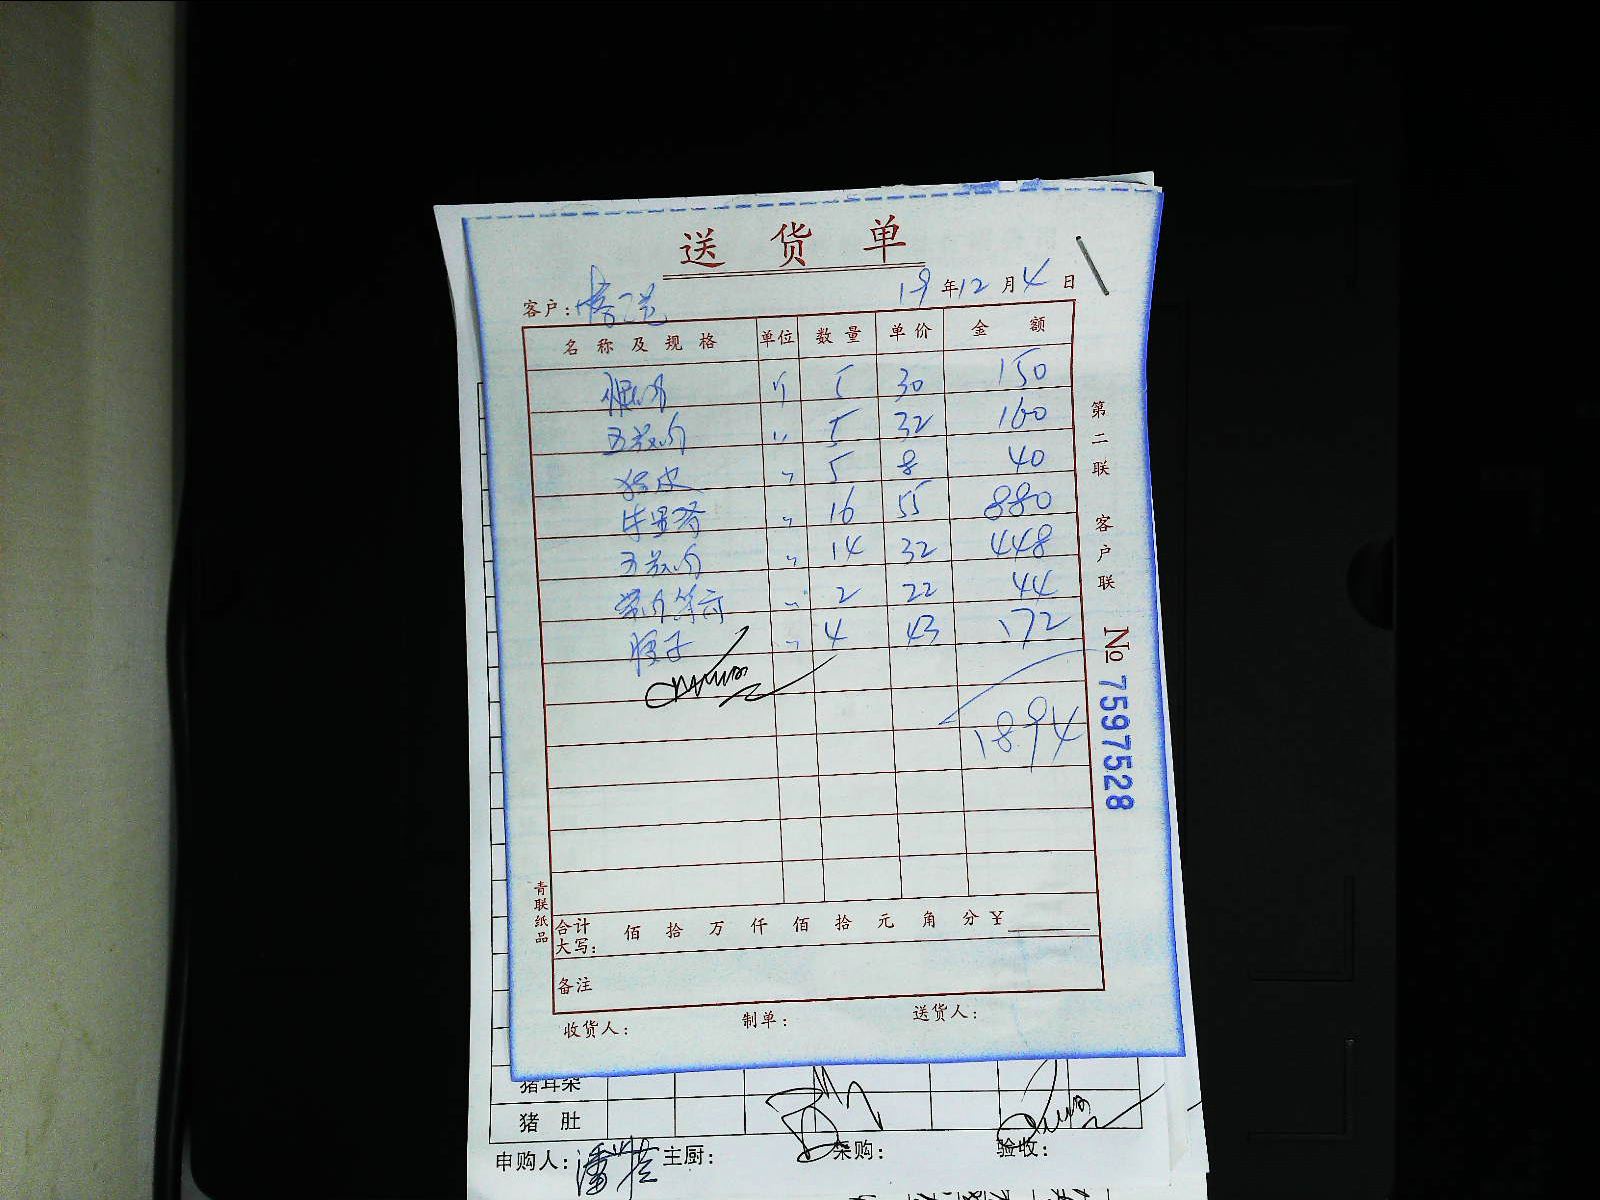 送货单
客户：
19年12月4日
名称及规格 单位 数量 单价 金额
斤 5 30 150
五花肉 〃 5 32 160
猪皮 〃 5 8 40
牛 〃 16 55 880
五花肉 〃 14 32 448
〃 2 22 44
子 〃 4 43 172
1894
合计大写： 佰 拾 万 仟 佰 拾 元 角 分 ¥
备注
收货人： 制单： 送货人：
第二联 客户联
No 7597528
青联纸品
猪耳朵
猪肚
申购人： 主厨： 采购： 验收：